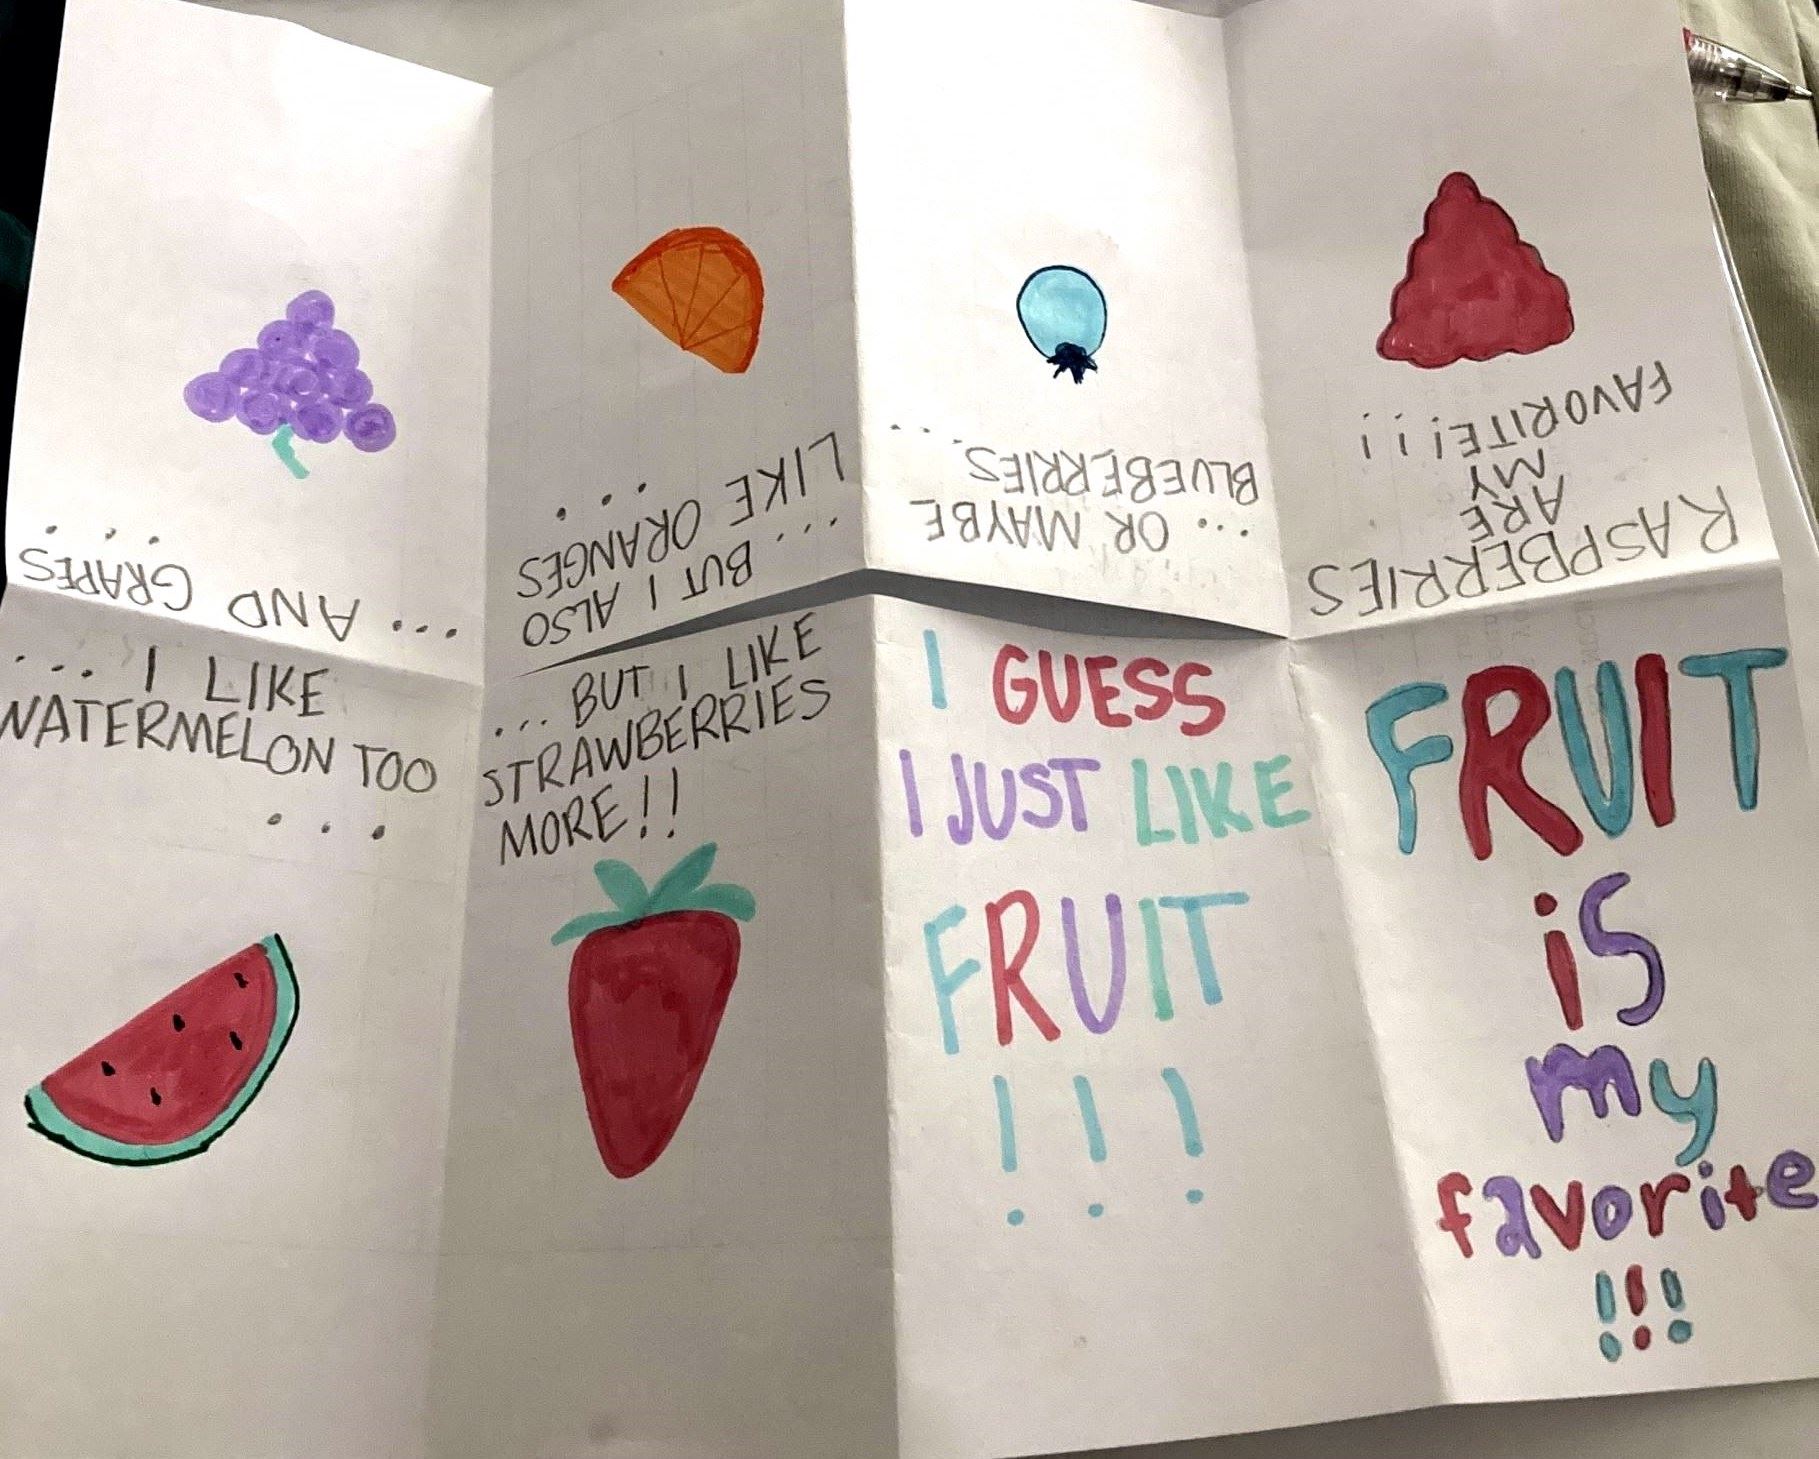 FRUIT
is
my
favorite
!!!
RASPBERRIES
ARE
MY
FAVORITE!!!
...OR MAYBE
BLUEBERRIES
...
...BUT I ALSO
LIKE ORANGES
...
...AND GRAPES
...
...I LIKE
WATERMELON TOO
...
...BUT I LIKE
STRAWBERRIES
MORE!!
I GUESS
I JUST LIKE
FRUIT
!!!